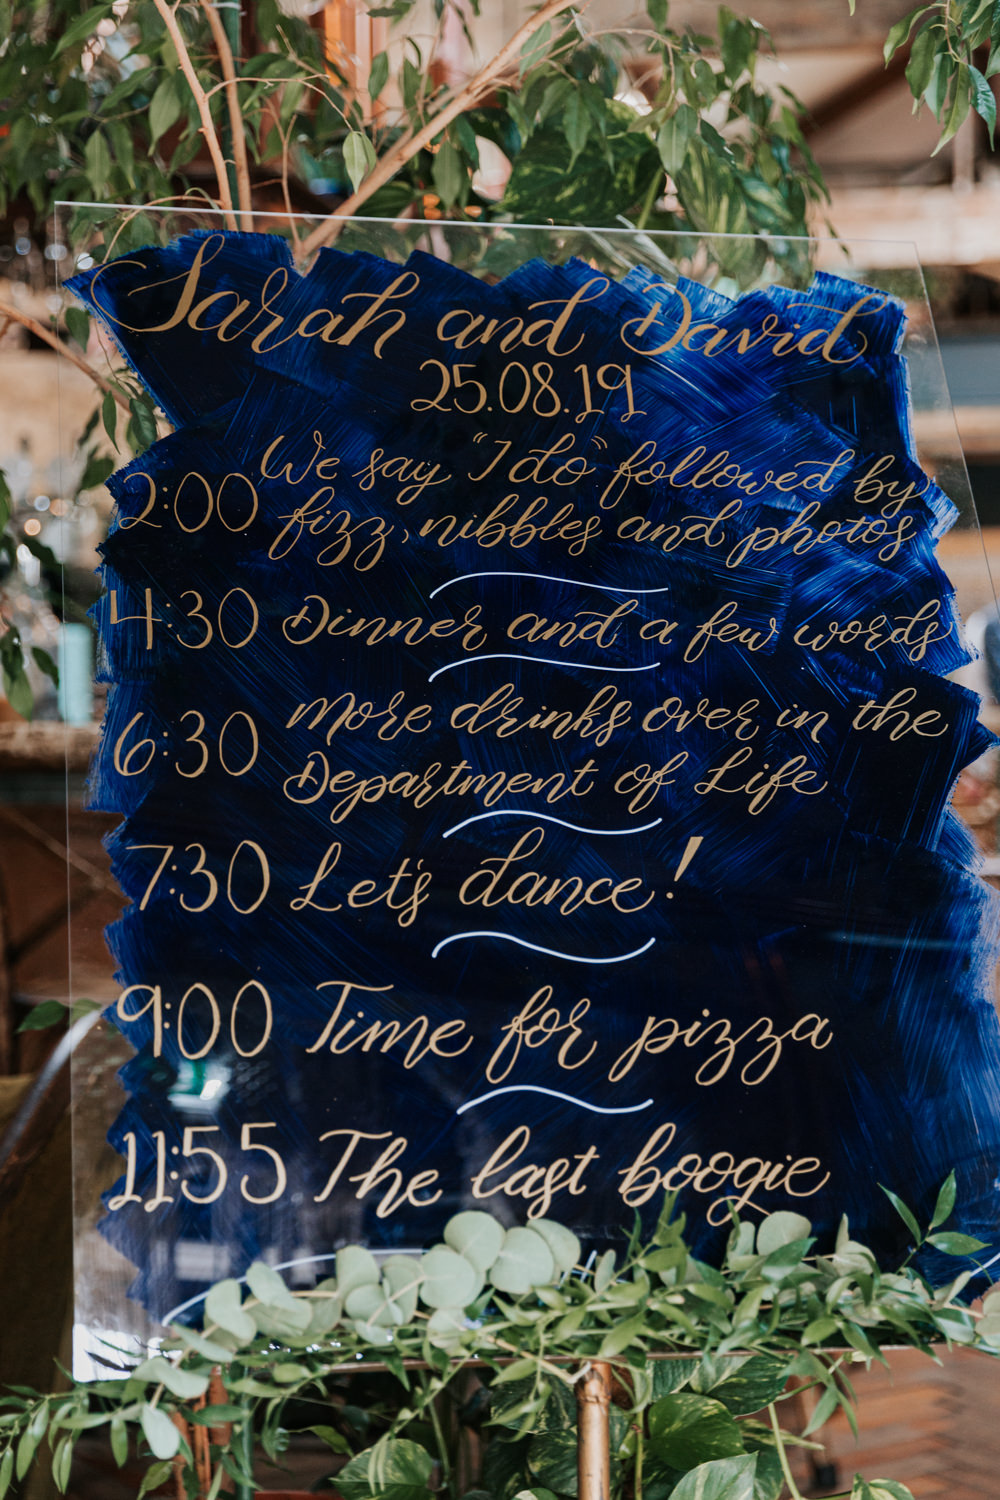 Sarah and David
25.08.19
2:00 We say "I do" followed by
fizz, nibbles and photos
4:30 Dinner and a few words
6:30 More drinks over in the
Department of Life
7:30 Let's dance!
9:00 Time for pizza
11:55 The last boogie